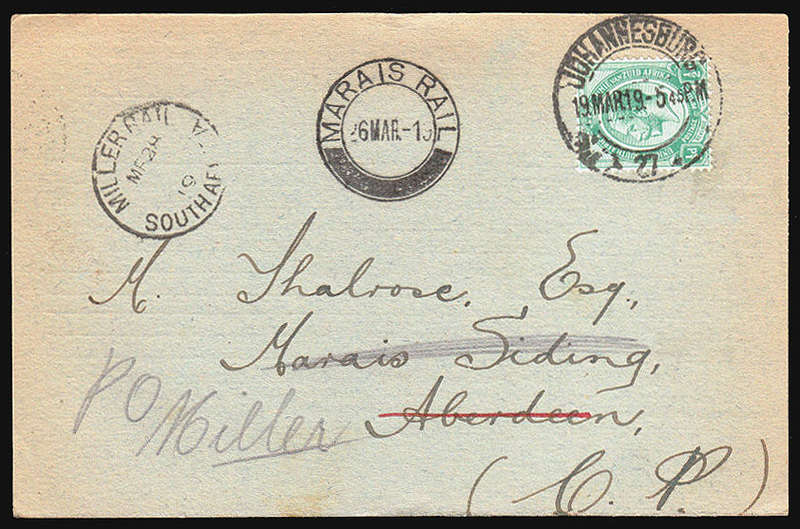 JOHANNESBURG
19 MAR 19 - 5 45 PM
27
MARAIS RAIL
26 MAR. - 19
MILLER RAIL
19
SOUTH AF
M. Thalrose, Esq.,
Marais Siding,
Aberdeen,
(C. P.)
P O Miller